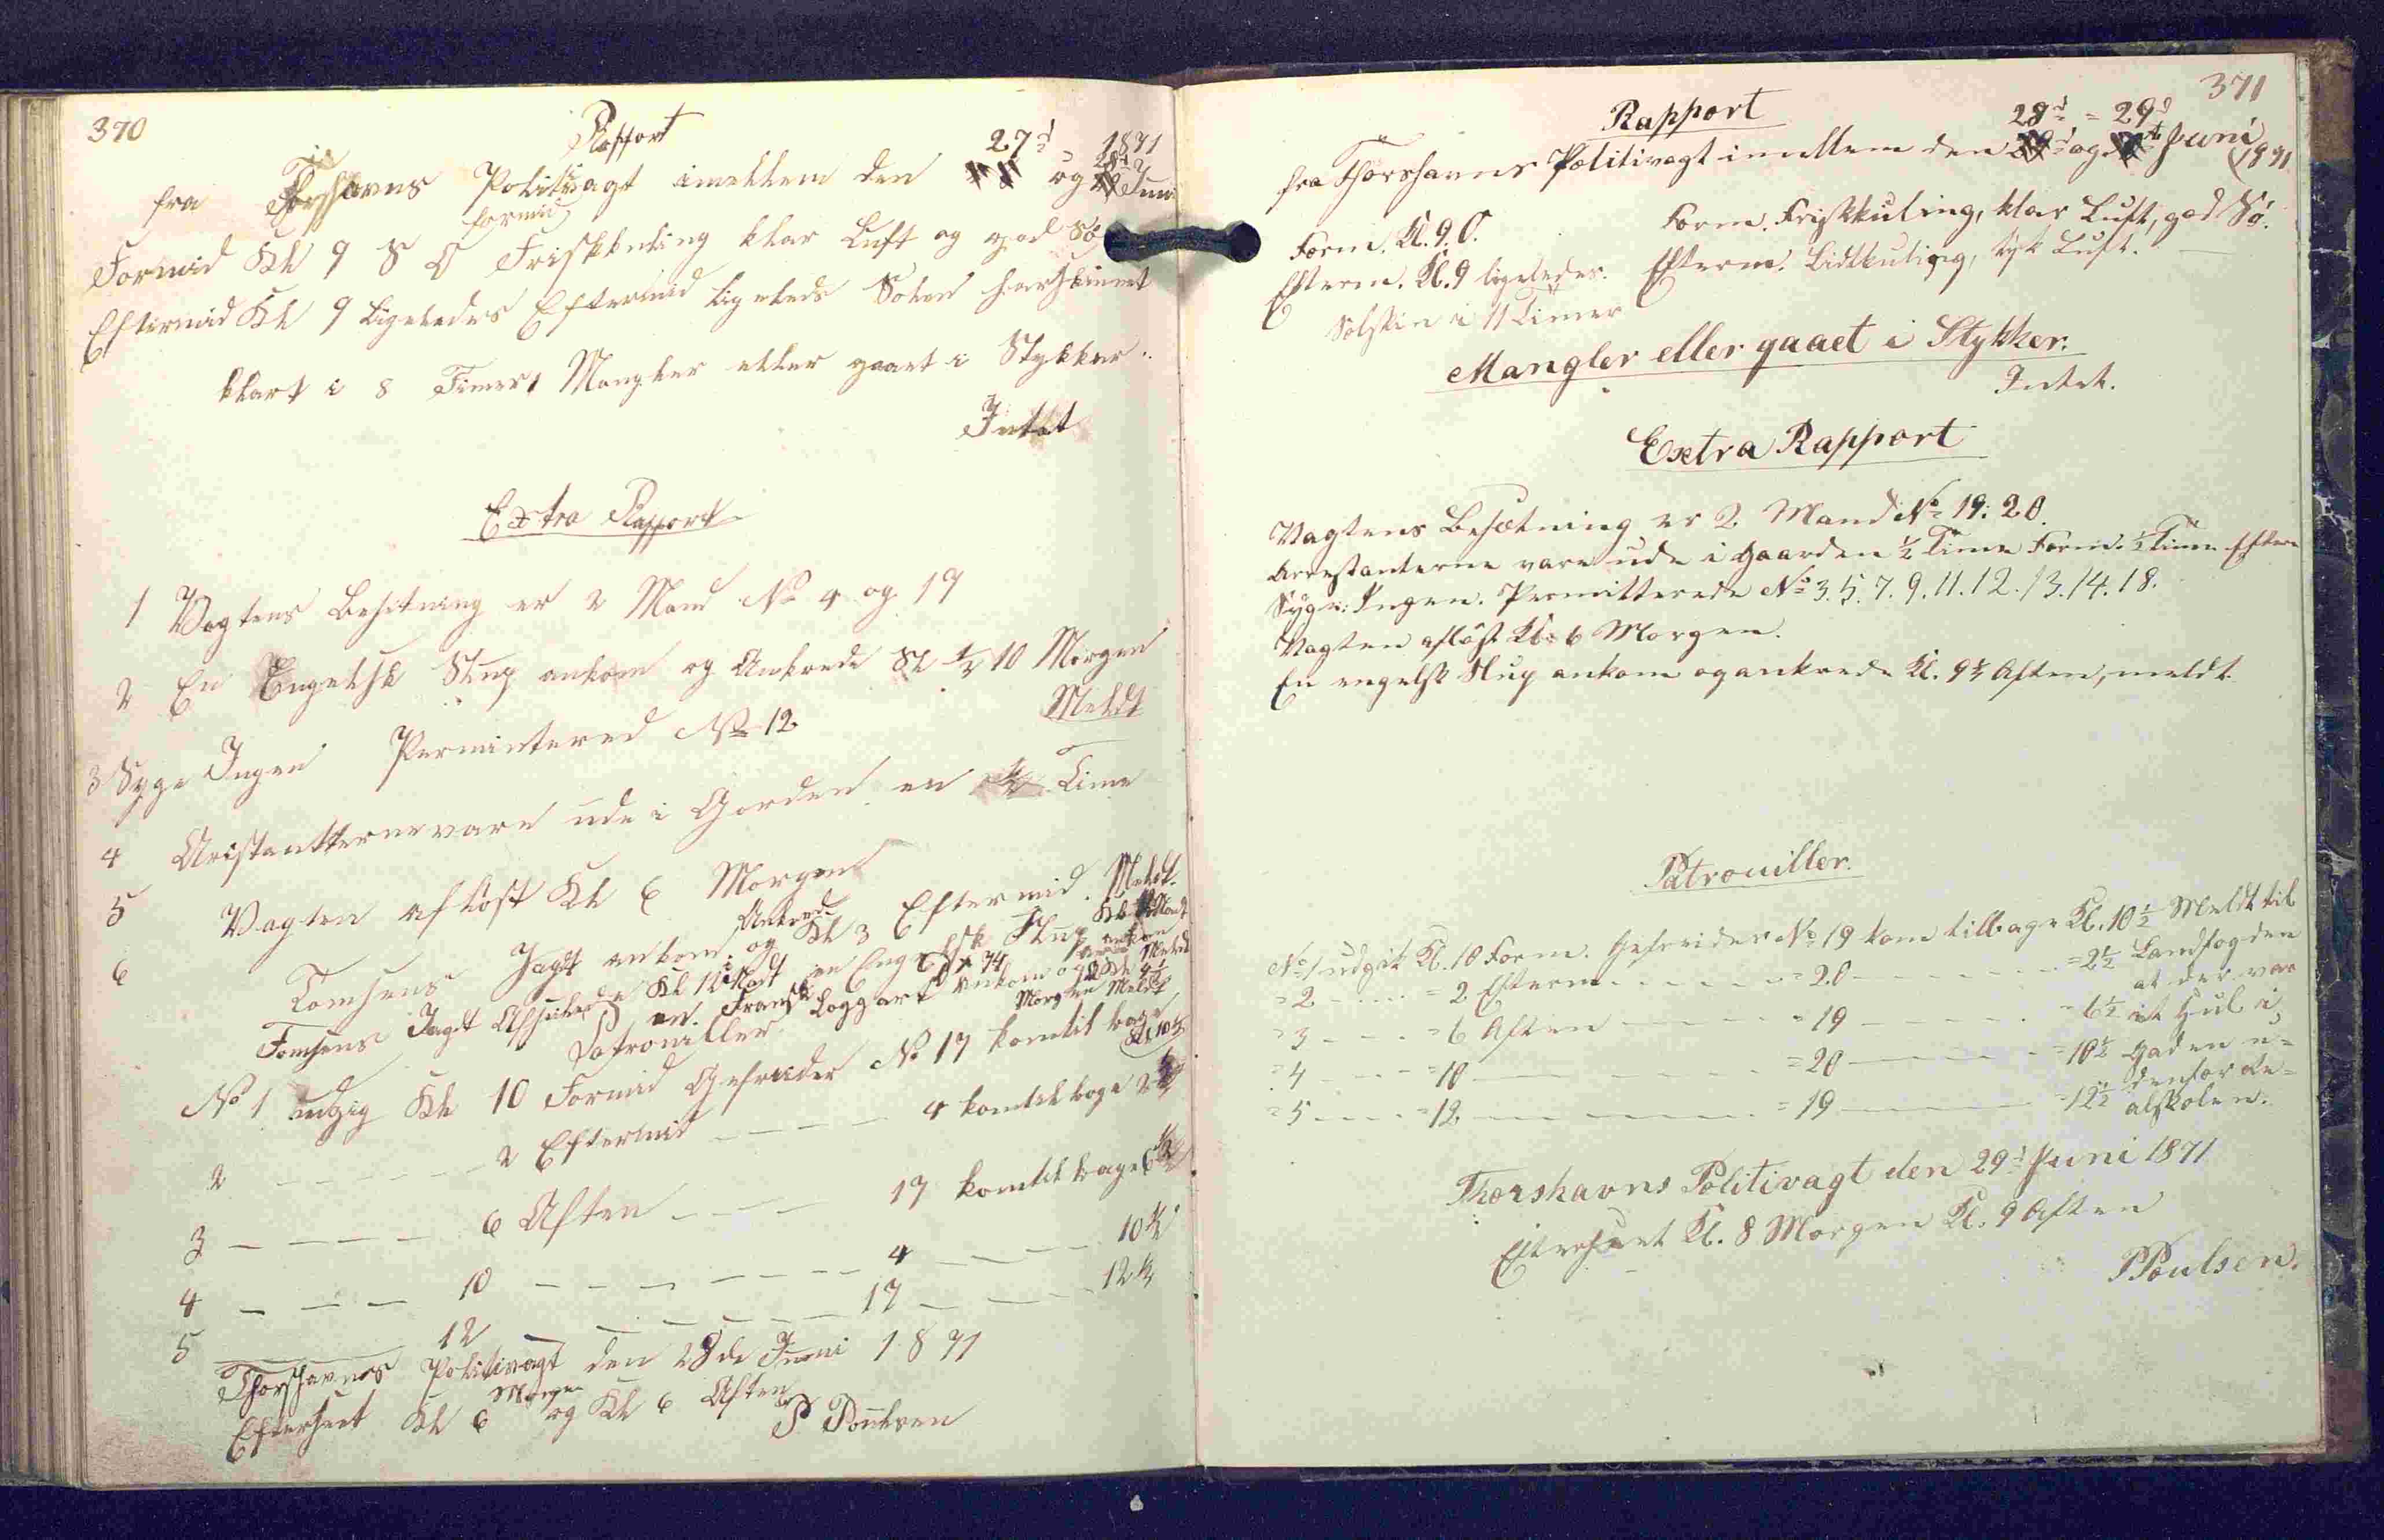 370
Rapport
fra Torshavns Politivagt imellem den 27d og 28d Juni 1871
Formid Kl 9 S O formid Friskkuling klar Luft og god Sö
Eftermid Kl 9 Ligeledes Eftermid ligeleds Solen har skinnet
klart i 8 Timer Mangler eller gaaet i Stykker
Intet
Extra Rapport
1 Vagtens Besetning er 2 Mand No 4 og 19
2 En Engelsk Slup ankom og Ankrede Kl ½ 10 Morgen
Meldt
3 Syge Ingen Permintered No 12
4 Aristantterne vare ude i Gorden en ½ Time
5 Vagten aflöst Kl 6 Morgen
6 Tomsens Jagt ankom og Ankrede Kl 3 Eftermid. Meldt.
Tomsens Jagt Afseilede Kl 12 Nat en Engelsk Slup
en Fransk Loggart ankom Morgen Meldt
Patrouiller
No 1 udgig Kl 10 Formid Gefreider No 17 kom tilbage Kl 10½
2 — — — 2 Eftermid — — — 4 kom tilbage 2½
3 — — — 6 Aften — — — 17 kom tilbage 6½
4 — — — 10 — — — 4 — — — 10½
5 — — — 12 — — — 17 — — — 12½
Thorshavns Politivagt den 28de Juni 1871
Efterseet Kl 6 Morgen og Kl 6 Aften
P Poulsen
371
Rapport
fra Thorshavns Politivagt imellem den 28d = 29d Juni 1871
Form. Kl. 9. O. Form. Friskkuling, klar Luft, god Sö.
Efterm. Kl. 9 ligeledes. Efterm. Lidtkuling, tyk Luft.
Solskin i 11 Timer
Mangler eller gaaet i Stykker.
Intet.
Extra Rapport
Vagtens Besætning er 2 Mand No 19. 20.
Arrestanterne vare ude i Gaarden ½ Time Form. ½ Time Efterm
Syge: Ingen. Permitterede No 3. 5. 7. 9. 11. 12. 13. 14. 18.
Vagten aflöst Kl. 6 Morgen.
En engelsk Slup ankom og ankrede Kl. 9½ Aften, meldt.
Patrouiller.
No 1 udgik Kl. 10 Form. Gefreider No 19 kom tilbage Kl. 10½ Meldt til
= 2 - - - = 2 Efterm. - - - = 20 - - - = 2½ Landfogden
= 3 - - - = 6 Aften - - - = 19 - - - = 6½ at der var et Hul i
= 4 - - - = 10 - - - = 20 - - - = 10½ Gaden u=
= 5 - - - = 12 - - - = 19 - - - = 12½ denfor Re=
alskolen.
Thorshavns Politivagt den 29d Juni 1871
Efterseet Kl. 8 Morgen Kl. 9 Aften
P Poulsen.